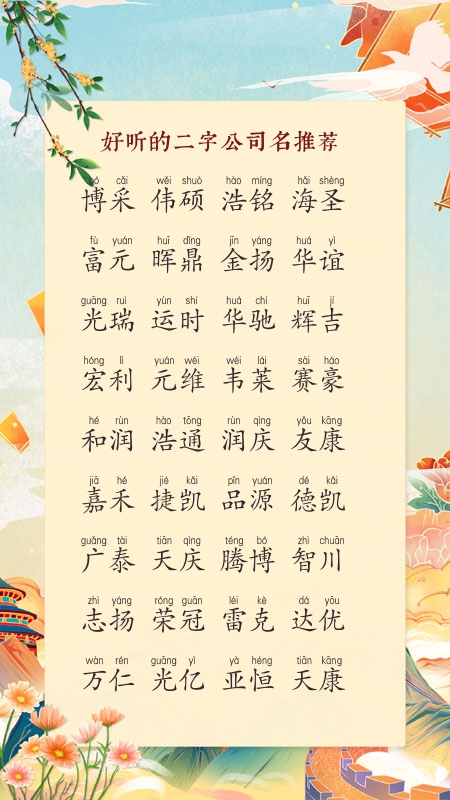 好听的二字公司名推荐
bó cǎi wěi shuò hào míng hǎi shèng
博采 伟硕 浩铭 海圣
fù yuán huī dǐng jīn yáng huá yì
富元 晖鼎 金扬 华谊
guāng ruì yùn shí huá chí huī jí
光瑞 运时 华驰 辉吉
hóng lì yuán wéi wéi lái sài háo
宏利 元维 韦莱 赛豪
hé rùn hào tōng rùn qìng yǒu kāng
和润 浩通 润庆 友康
jiā hé jié kǎi pǐn yuán dé kǎi
嘉禾 捷凯 品源 德凯
guǎng tài tiān qìng téng bó zhì chuān
广泰 天庆 腾博 智川
zhì yáng róng guān léi kè dá yōu
志扬 荣冠 雷克 达优
wàn rén guāng yì yà héng tiān kāng
万仁 光亿 亚恒 天康